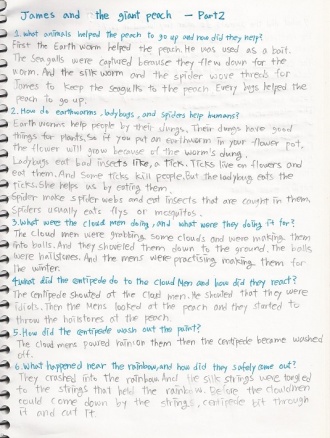 James and the giant peach - Part2
1. what animals helped the peach to go up and how did they help?
First the Earth worm helped the peach. He was used as a bait.
The Seagulls were captured because they flew down for the
worm. And the silk worm and the spider wove threds for
James to keep the seagulls to the peach. Every bugs helped the
peach to go up.
2. How do earthworms, ladybugs, and spiders help humans?
Earthworms help people by their dungs. Their dungs have good
things for plants. So if you put an earthworm in your flower pot,
the flower will grow because of the worm's dung.
Ladybugs eat bad insects like, a tick. Ticks live on flowers and
eat them. And Some ticks kill people. But the ladybug eats the
ticks. She helps us by eating them.
Spider make spider webs and eat insects that are caught in them.
Spiders usually eats flys or mosquitos.
3. what were the cloud men doing, and what were they doing it for?
The cloud men were grabbing some clouds and were making them
into balls. And they shoveled them down to the ground. The balls
were hailstones. And the mens were practising making them for
the winter.
4. what did the centipede do to the Cloud Men and how did they react?
The centipede shouted at the Cloud men. He shouted that they were
idiots. Then the mens looked at the peach and they started to
throw the hailstones at the peach.
5. How did the centipede wash out the paint?
The cloud mens poured rain on them then the centipede became washed
off.
6. What happened near the rainbow, and how did they safely come out?
They crashed into the rainbow. And the silk strings were tangled
to the strings that held the rainbow. Before the cloudmen
could come down by the strings, centipede bit through
it and cut it.